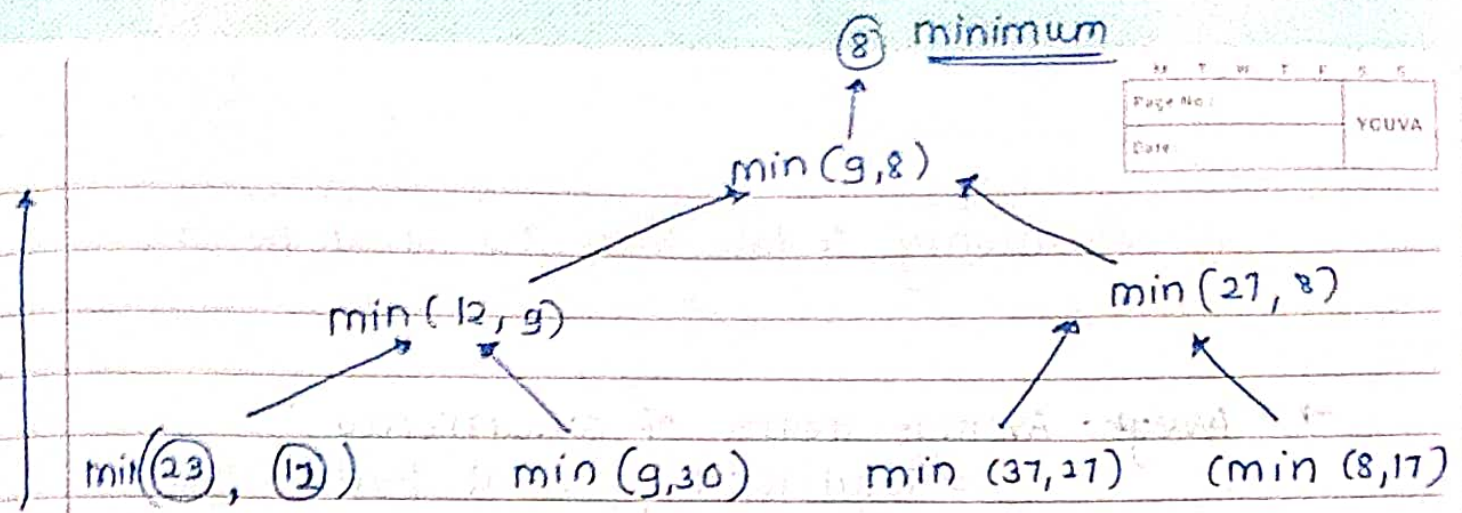 8 minimum
M T W T F S S
Page No.:
YOUVA
Date:
min (9,8)
min (27, 8)
min ( 12, 9)
min(23, 12)
min (9,30)
min (37,27)
(min (8,17)